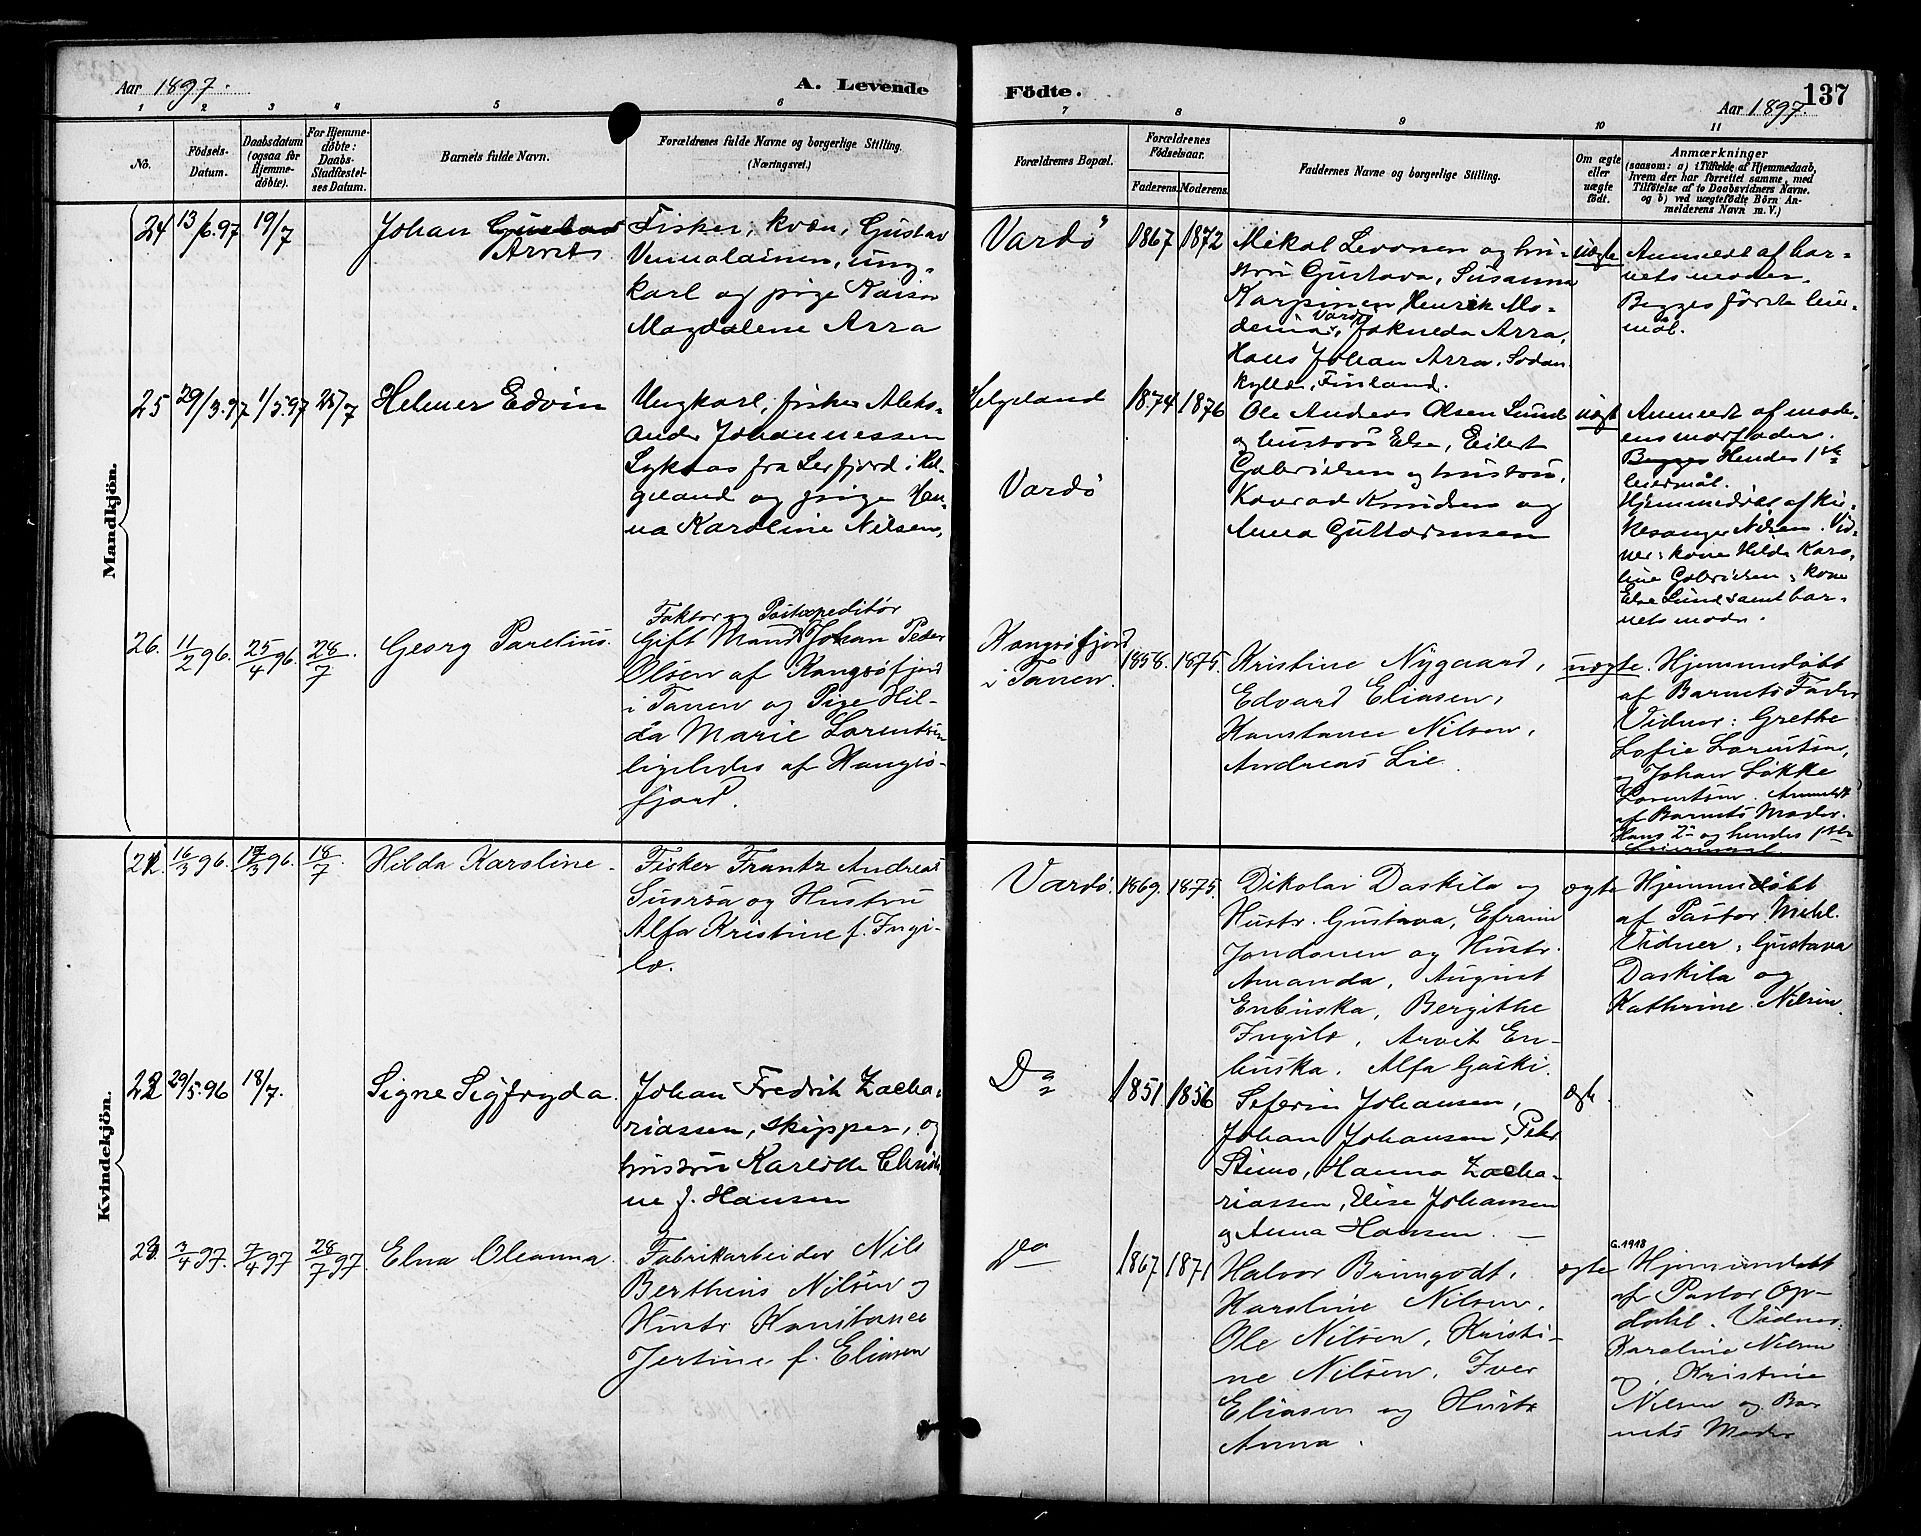 Aar 1897.
A. Levende
Födte.
137
Aar 1897.
1 2 3 4 5 6 7 8 9 10 11
No.
Födsels-
Datum.
Daabsdatum
(ogsaa for
Hjemme-
döbte).
For Hjemme-
döbte:
Daabs-
Stadfæstel-
ses Datum.
Barnets fulde Navn.
Forældrenes fulde Navne og borgerlige Stilling.
(Næringsvei.)
Forældrenes Bopæl.
Forældrenes
Födselsaar.
Faderens. Moderens.
Faddernes Navne og borgerlige Stilling.
Om ægte
eller
uægte
födt.
Anmærkninger
(saasom: a) i Tilfælde af Hjemmedaab,
hvem der har forrettet samme, med
Tilföielse af to Daabsvidners Navne.
og b) ved uægtefödte Börn An-
melderens Navn m. V.)
Mandkjön.
24 13/6.97 19/7
Johan Gustav
Arvid
Fisker, kvæn, Gustav
karl og pige Kaisa
Magdalene Arra
Vardö
1867 1872
Mikal Levonen og hu-
stru Gustava, Susanna
Karpinen, Henrik Mo-
Vardö
Arra,
Hans Johan Arra, Sodan
kylle, Finland.
uægte
Anmeldt af bar-
nets moder.
Begges første leier-
mål.
25 29/3.97 1/5.97 25/7
Helmer Edvin
Ungkarl, fisker Aleks-
ander Johannessen
fra Lerfjord i Hel-
geland og pige Han-
na Karoline Nilsen,
Helgeland
Vardö
1874 1876
Ole Andreas Olsen Lund
og hustru Else, Eilert
Gabrielsen og hustru,
Konrad Knudsen og
Anna Guttormsen
uægt
Anmeldt af mode-
rens morfader.
Begges Hendes 1ste
leiermål.
Hjemmedöbt af kir-
kesanger Nilsen. Vid-
ner: kone Hilda Karo-
line Gabrielsen, kone
Else Lund samt bar-
nets moder.
26. 11/2 96. 25/4 96. 28/7
Georg Parelius.
Faktor og Postexpeditör
Gift Mand Johan Peder
Olsen af Kongsöfjord
i Tanen og Pige Hil-
da Marie Lorentsen
ligeledes af Kongsö-
fjord.
Kongsöfjord
i Tanen.
1858. 1875.
Kristine Nygaard,
Edvard Eliasen,
Konstance Nilsen,
Andreas Lie
uægte.
Hjemmedöbt
af Barnets Fader
Vidner: Grethe
Sofie Lorentsen,
og Johan Lökke
Lorentsen. Anmeldt
af Barnets Moder.
Hans 2det og hendes 1ste
Leiermaal.
Kvindekjön.
21. 16/3 96. 17/3 96. 18/7.
Hilda Karoline.
Fisker Frantz Andreas
og Hustru
Alfa Kristine f. Ingi-
læ.
Vardö.
1869. 1875.
Nikolai Daskila og
Hustr. Gustava, Efraim
Jondonen og Hustr.
Amanda, August
Enbuska, Bergithe
Ingilæ, Arvit En-
buska. Alfa Gaski.
ægte
Hjemmedöbt
af Pastor Mehl.
Vidner: Gustava
Daskila og
Kathrine Nilsen.
22 29/5.96 18/7.
Signe Sigfryda.
Johan Fredrik Zacha-
riassen, skipper, og
hustru Karlotte Christi-
ne f. Hansen
Do
1851 1856
Seferin Johansen,
Johan Johansen, Peder
Stimo, Hanna Zacha-
riassen, Elise Johansen
og Anna Hansen. —
ægte.
23 3/4 97. 7/4 97 28/7 97
Elna Oleanna.
Fabrikarbeider Nils
Berthins Nilsen og
Hustr Konstance
Jertine f. Eliasen
Do
1867 1871
Halvor Brungodt,
Karoline Nilsen,
Ole Nilsen, Kristi-
ne Nilsen, Iver
Eliasen og Hustr
Anna.
ægte
G. 1918
Hjemmedöbt
af Pastor Op-
dahl. Vidner:
Karoline Nilsen
og Kristine
Nilsen og Bar
nets Moder